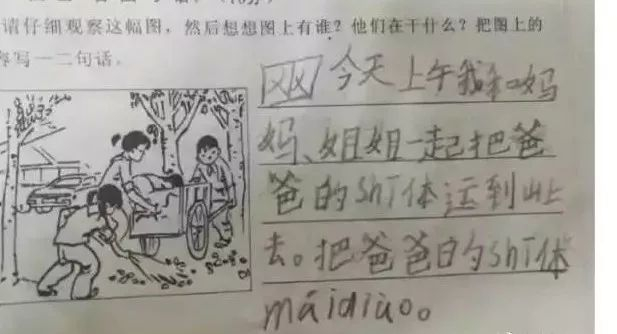 请仔细观察这幅图，然后想想图上有谁？他们在干什么？把图上的
写一二句话。
今天上午我和妈
妈、姐姐一起把爸
爸的shī体运到山上
去。把爸爸的shī体
máidiào。